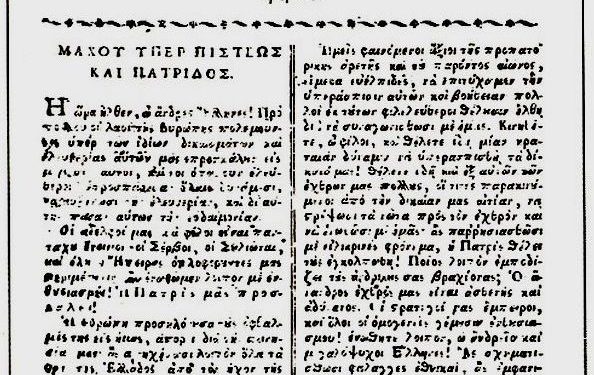 ΜΑΧΟΥ ΥΠΕΡ ΠΙΣΤΕΩΣ
ΚΑΙ ΠΑΤΡΙΔΟΣ.
Η ὥρα ἦλθεν, ὦ ἄνδρες Ἕλληνες! Πρὸ
πολλοῦ οἱ λαοὶ τῆς Εὐρώπης πολεμοῦν-
τες ὑπὲρ τῶν ἰδίων δικαιωμάτων καὶ
ἐλευθερίας αὐτῶν μᾶς ἐπροσκάλουν εἰς
Οἱ ἀδελφοί μας καὶ φίλοι εἶναι παν-
ταχοῦ ἕτοιμοι· οἱ Σέρβοι, οἱ Σουλιῶται,
καὶ ὅλη ἡ Ἤπειρος ὁπλοφοροῦντες μᾶς
περιμένουν· ἂς ἑνωθῶμεν λοιπὸν μὲ ἐν-
θουσιασμόν! ἡ Πατρὶς μᾶς προσ-
καλεῖ!
Ἡ Εὐρώπη προσηλόνουσα τοὺς ὀφθαλ-
μούς της εἰς ἡμᾶς, ἀπορεῖ διὰ τὴν ἀκινη-
σίαν μας· ἂς ἀντηχήσωσι λοιπὸν ὅλα τὰ
ὄρη τῆς Ἑλλάδος ἀπὸ τὸν ἦχον τῆς
Ἡμεῖς φαινόμενοι ἄξιοι τῆς προπατο-
ρικῆς ἀρετῆς καὶ τοῦ παρόντος αἰῶνος,
εἴμεθα εὐέλπιδες, νὰ ἐπιτύχωμεν τὴν
ὑπεράσπισιν αὐτῶν καὶ βοήθειαν· πολ-
λοὶ ἐκ τούτων φιλελεύθεροι θέλουσιν ἔλθῃ
διὰ νὰ συναγωνισθῶσι μὲ ἡμᾶς. Κινηθῆ-
τε, ὦ φίλοι, καὶ θέλετε ἰδεῖ μίαν κρα-
ταιὰν δύναμιν νὰ ὑπερασπισθῇ τὰ δί-
καιά μας! Θέλετε ἰδῇ καὶ ἐξ αὐτῶν τῶν
ἐχθρῶν μας πολλούς, οἵτινες παρακινού-
μενοι ἀπὸ τὴν δικαίαν μας αἰτίαν, νὰ
στρέψωσι τὰ νῶτα πρὸς τὸν ἐχθρὸν καὶ
νὰ ἑνωθῶσι μὲ ἡμᾶς· ἂς παρρησιασθῶσι
μὲ εἰλικρινὲς φρόνημα, ἡ Πατρὶς θέλει
τοὺς ἐγκολπωθῇ! Ποῖος λοιπὸν ἐμποδί-
ζει τοὺς ἀνδρικούς σας βραχίονας; Ὁ ἄ-
νανδρος ἐχθρός μας εἶναι ἀσθενὴς καὶ
ἀδύνατος. Οἱ στρατηγοί μας ἔμπειροι,
καὶ ὅλοι οἱ ὁμογενεῖς γέμουσιν ἐνθουσια-
σμοῦ! ἑνωθῆτε λοιπόν, ὦ ἀνδρεῖοι καὶ
μεγαλόψυχοι Ἕλληνες! Ἂς σχηματι-
σθῶσι φάλαγγες ἐθνικαί, ἂς ἐμφανι-